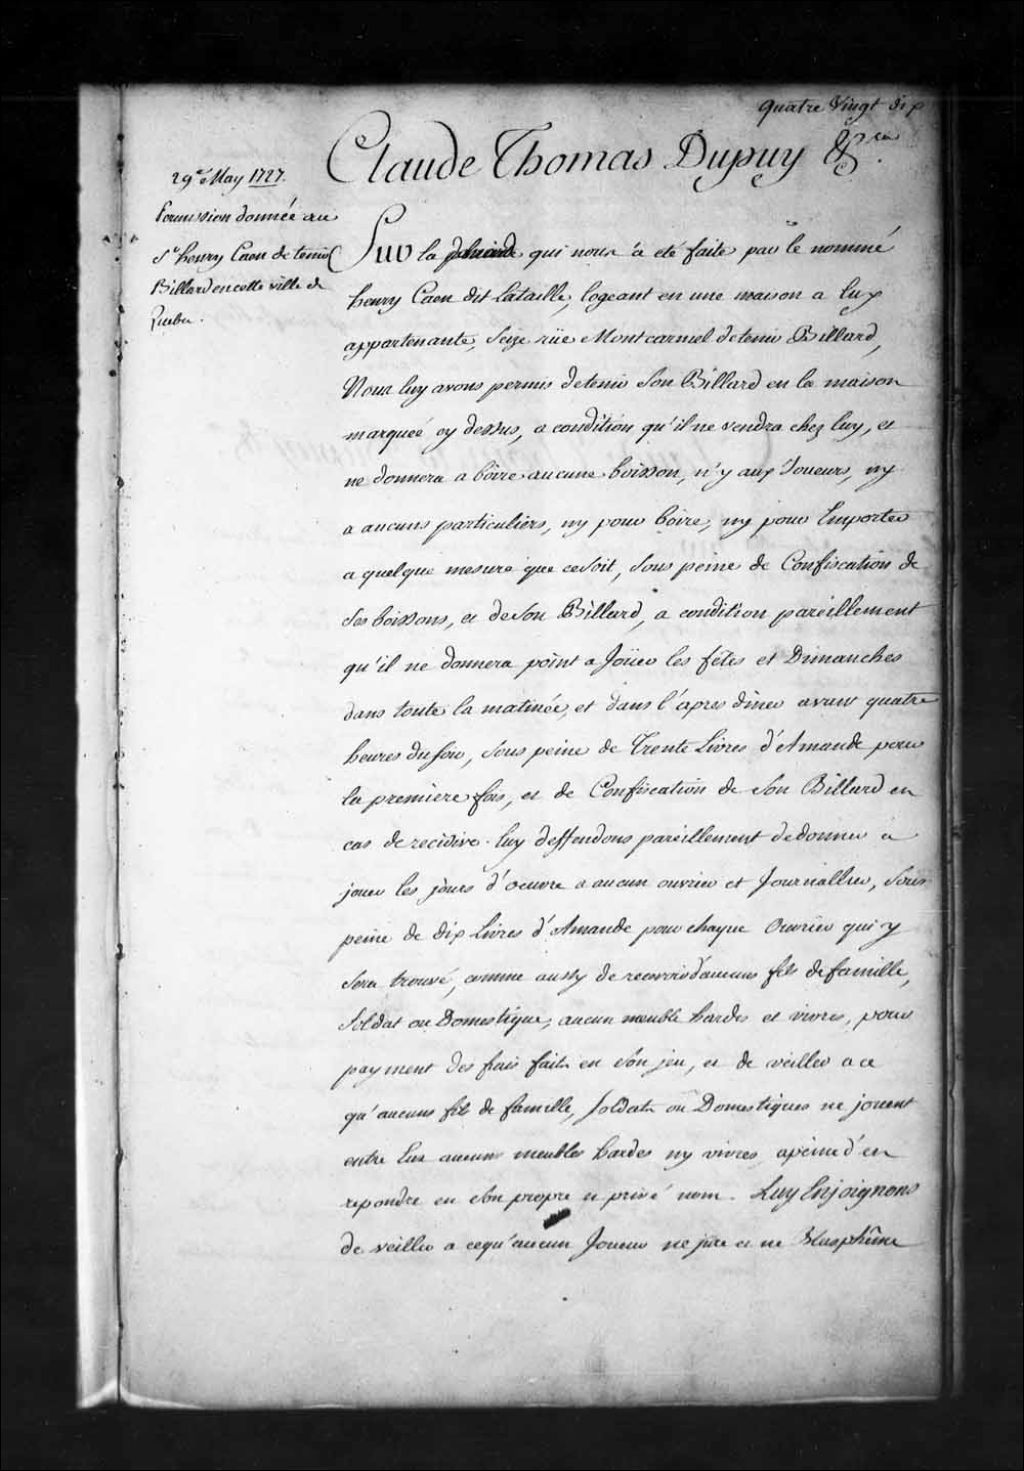 Quatre Vingt dix
Claude Thomas Dupuy &ca.
29e May 1727.
Permission donnée au
Sr henry Caen de tenir
Billard en cette ville de
Quebec.
Sur la demande qui nous a eté faite par le nommé
henry Caen dit Lataille, logeant en une maison a luy
appartenante, Seize rüe Montcarmel de tenir Billard,
Nous luy avons permis de tenir Son Billard en la maison
marqueé cy dessus, a condition qu'il ne vendra chez luy, et
ne donnera a boire aucune boisson, n'y aux Joueurs, ny
a aucuns particuliers, ny pour boire, ny pour Emporter
a quelque mesure que ce Soit, Sous peine de Confiscation de
Ses boissons, et de Son Billard, a condition pareillement
qu'il ne donnera point a Joüer les fêtes et Dimanches
dans toute la matinée, et dans l'apres diner avant quatre
heures du Soir, Sous peine de Trente Livres d'Amande pour
la premiere fois, et de Confiscation de Son Billard en
cas de recidive. luy deffendons pareillement de donner a
jouer les jours d'oeuvre a aucun ouvrier et Journallier, Sous
peine de dix Livres d'Amande pour chaque Ouvrier qui y
Sera trouvé, comme aussy de recevoir d'aucuns fils de famille,
Soldat ou Domestique, aucun meuble hardes et vivres, pour
payment des frais faits en Son jeu, et de veiller a ce
qu'aucuns fils de famille, Soldats ou Domestiques ne jouent
entre Eux aucuns meubles hardes ny vivres, a peine d'en
repondre en Son propre et privé nom. Luy Enjoignons
de veiller a ce qu'aucun Joueur ne jure et ne Blasphême